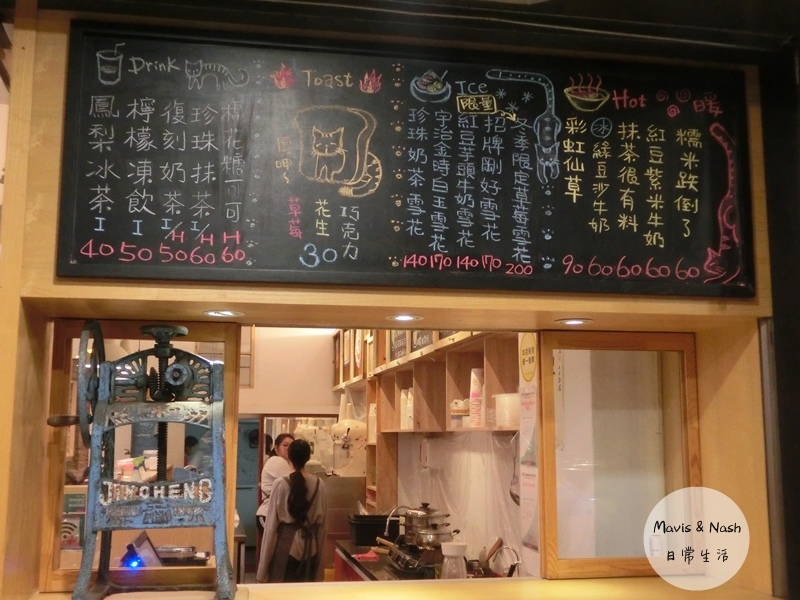 Drink
鳳梨冰茶 I 40
檸檬凍飲 I 50
復刻奶茶 I/H 50
珍珠抹茶 I/H 60
棉花糖可可 H 60
Toast
草莓
花生
巧克力
30
Ice
限量
珍珠奶茶雪花 140
宇治金時白玉雪花 170
紅豆芋頭牛奶雪花 140
招牌剛好雪花 170
冬季限定草莓雪花 200
Hot
暖
彩虹仙草 90
冰 綠豆沙牛奶 60
抹茶很有料 60
紅豆紫米牛奶 60
糯米跌倒了 60
Mavis & Nash
日常生活